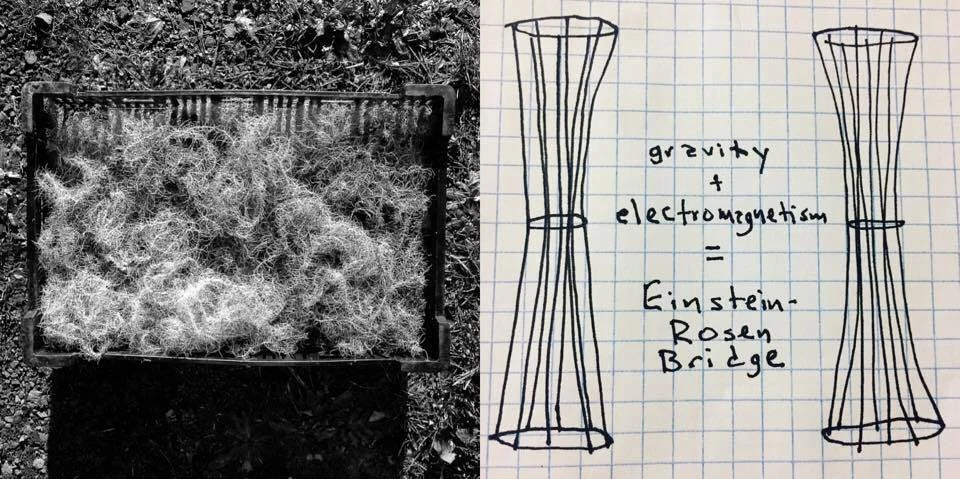 gravity
+
electromagnetism
=
Einstein-
Rosen
Bridge